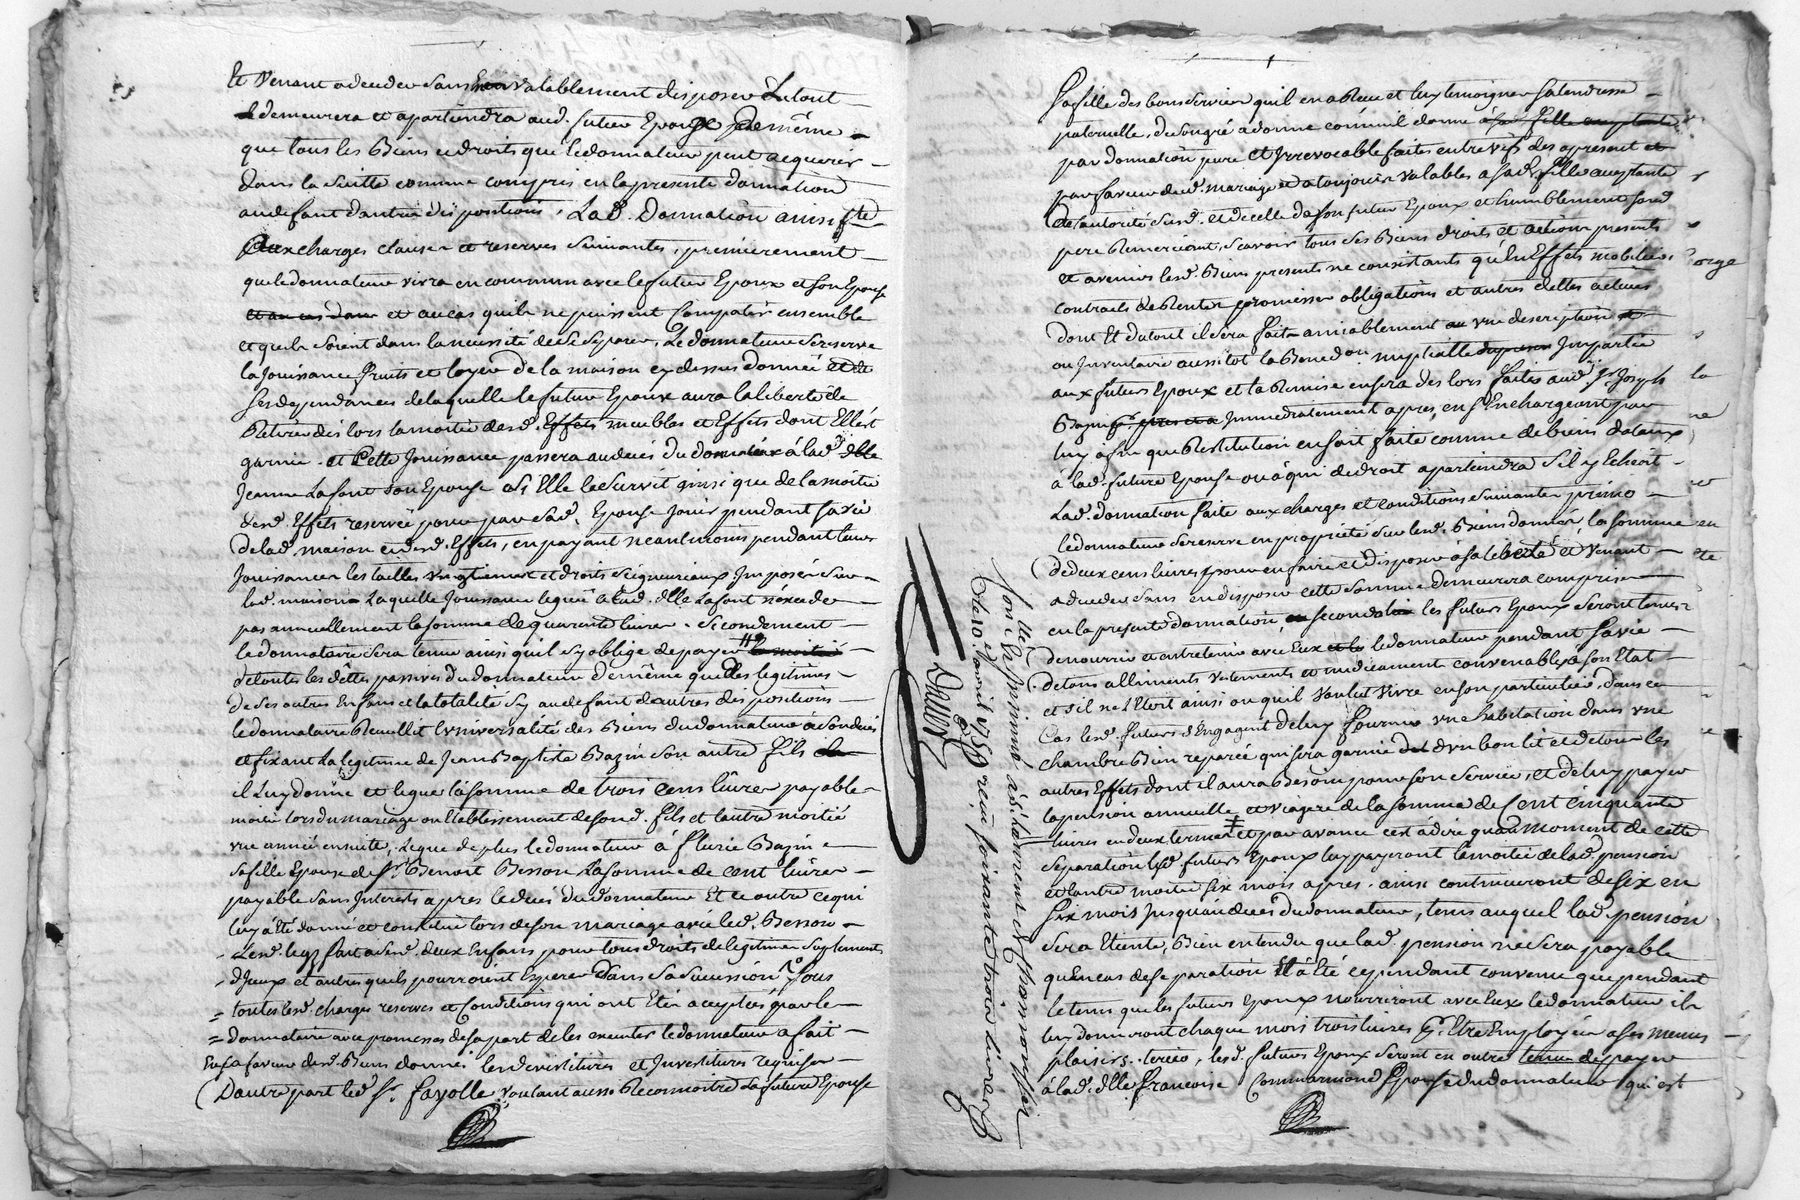 Et venant a deceder sans valablement disposer du tout
demeurera et apartiendra aud. futur Epoux de même
que tous les Biens et droits que le donnateur peut acquerir
dans la suitte comme compris en la presente donnation
au deffaut d'autres dispositions, Lad. Donnation ainsi fte
aux charges clauses et reserves suivantes, premierement
que le donnateur vivra en commun avec le futur Epoux et son Epouse
et au cas qu'ils ne puissent Compatir ensemble
et qu'ils soient dans la necessité de se separer, Le donnateur se reserve
la Jouissance fruits et loyers de la maison cy dessus donnée et de
ses dependances de laquelle le futur Epoux aura la liberté de
Retirer dès lors la moitié desd. meubles et Effets dont Elle est
garnie. et Cette Jouissance passera au deces du donnateur à lad. dlle
Jeanne Lafont son Epouse si Elle le survit ainsi que de la moitié
desd. Effets reservée pour par sad. Epouse Jouir pendant sa vie
de lad. maison et desd. Effets, en payant neanmoins pendant leurs
Jouissances les tailles vingtiemes et droits seigneuriaux Imposés sur
lad. maison Laquelle Jouissance leguée a lad. dlle Lafont n'excede
pas annuellement la somme de quarante livres. Secondement
le donnataire sera tenu ainsi qu'il s'y oblige de payer
de toutes les dettes passives du donnateur de même que des legitimes
de ses autres Enfans et la totalité sy au defaut d'autres dispositions
le donnataire Recueillit l'universalité des Biens du donnateur à son deces
et fixant La legitime de Jean Baptiste Bazin son autre fils
il Luy donne et legue la somme de trois cens livres payable
moitié lors du mariage ou Etablissement de sond. fils et l'autre moitié
une année ensuite, Legue de plus le donnateur à fleurie Bazin
sa fille Epouse de sr. Benoit Besson La somme de cent livres
payable sans Interets apres le deces du donnateur Et ce outre ce qui
luy a Eté donné et constitué lors de son mariage avec led. Besson
Lesd. legs fait a sesd. deux Enfans pour tous droits de legitimes suplements
d'Iceux et autres quels pourroient Esperer Dans sa succession, sous
toutes lesd. charges reserves et Conditions qui ont Eté acceptées par le
donnataire avec promesses de sa part de les executer le donnateur a fait
En sa faveur desd. Biens donnés les devestitures et Investitures requises
D'autre part led. Sr. fayolle voulant aussi Reconnoitre La future Epouse
Dauer
Controllé et Insinué à St. Laurent de Chamousset
le 10. avril 1759 reçu soixante trois livres
sa fille des bons services quil en a Receu et luy temoigner sa tendresse
paternelle, de son gré a donné comme il donne
par donnation pure et Irrevocable faite entre vifs des apresent
par faveur dud. mariage et a toujours valables a sad. fille acceptante
de l'autorité susd. et de celle de son futur Epoux et humblement sond
pere Remerciant, scavoir tous ses Biens droits et actions presents
et avenirs lesd. Biens presents ne consistants qu'en Effets mobiliers
contracts de Rentes promesses obligations et autres dettes actives
dont Et du tout il sera fait amiablement une description
ou Inventaire aussitot la Benediction nuptialle Impartie
aux futurs Epoux et la Remise en sera des lors faites aud. sr. Joseph
Bazin Immediatement apres, en s'En chargeant par
luy afin que Restitution en soit faite comme de biens dotaux
à lad. future Epouse ou à qui de droit apartiendra s'il y Echeoit
Lad. donnation faite aux charges et conditions suivantes primo
le donnateur se reserve en proprieté sur lesd. Biens donnés, la somme
de deux cens livres pour en faire et disposer à sa liberté et venant
a deceder sans en disposer cette somme demeurera comprise
en la presente donnation, secondo les futurs Epoux seront tenus
de nourrir et entretenir avec Eux le donnateur pendant sa vie
de tous alliments vetements et medicament convenables à son Etat
et s'il ne l'Etoit ainsi ou quil voulut vivre en son particulier, dans ce
Cas lesd. futurs s'Engagent de luy fournir une habitation dans une
chambre Bien reparée qui sera garnie d'un bon lit et de tous les
autres Effets dont il aura Besoin pour son service, et de luy payer
la pension annuelle et viagere de la somme de Cent Cinquante
livres en deux termes et par avance c'est à dire qu'au moment de cette
separation lesd. futurs Epoux luy payeront la moitié de lad. pension
et l'autre moitié six mois apres. ainsi continueront de six en
six mois Jusqu'au deces du donnateur, tems auquel lad. pension
sera Eteinte, Bien entendu que lad. pension ne sera payable
qu'en cas de separation Il à Eté cependant convenu que pendant
le tems que les futurs Epoux nourriront avec Eux le donnateur ils
luy donneront chaque mois trois livres pr. Etre Employées a ses menus
plaisirs. tercio, lesd. futurs Epoux seront en outre tenus de payer
à lad. dlle francoise Commarmond Epouse du donnateur qui est